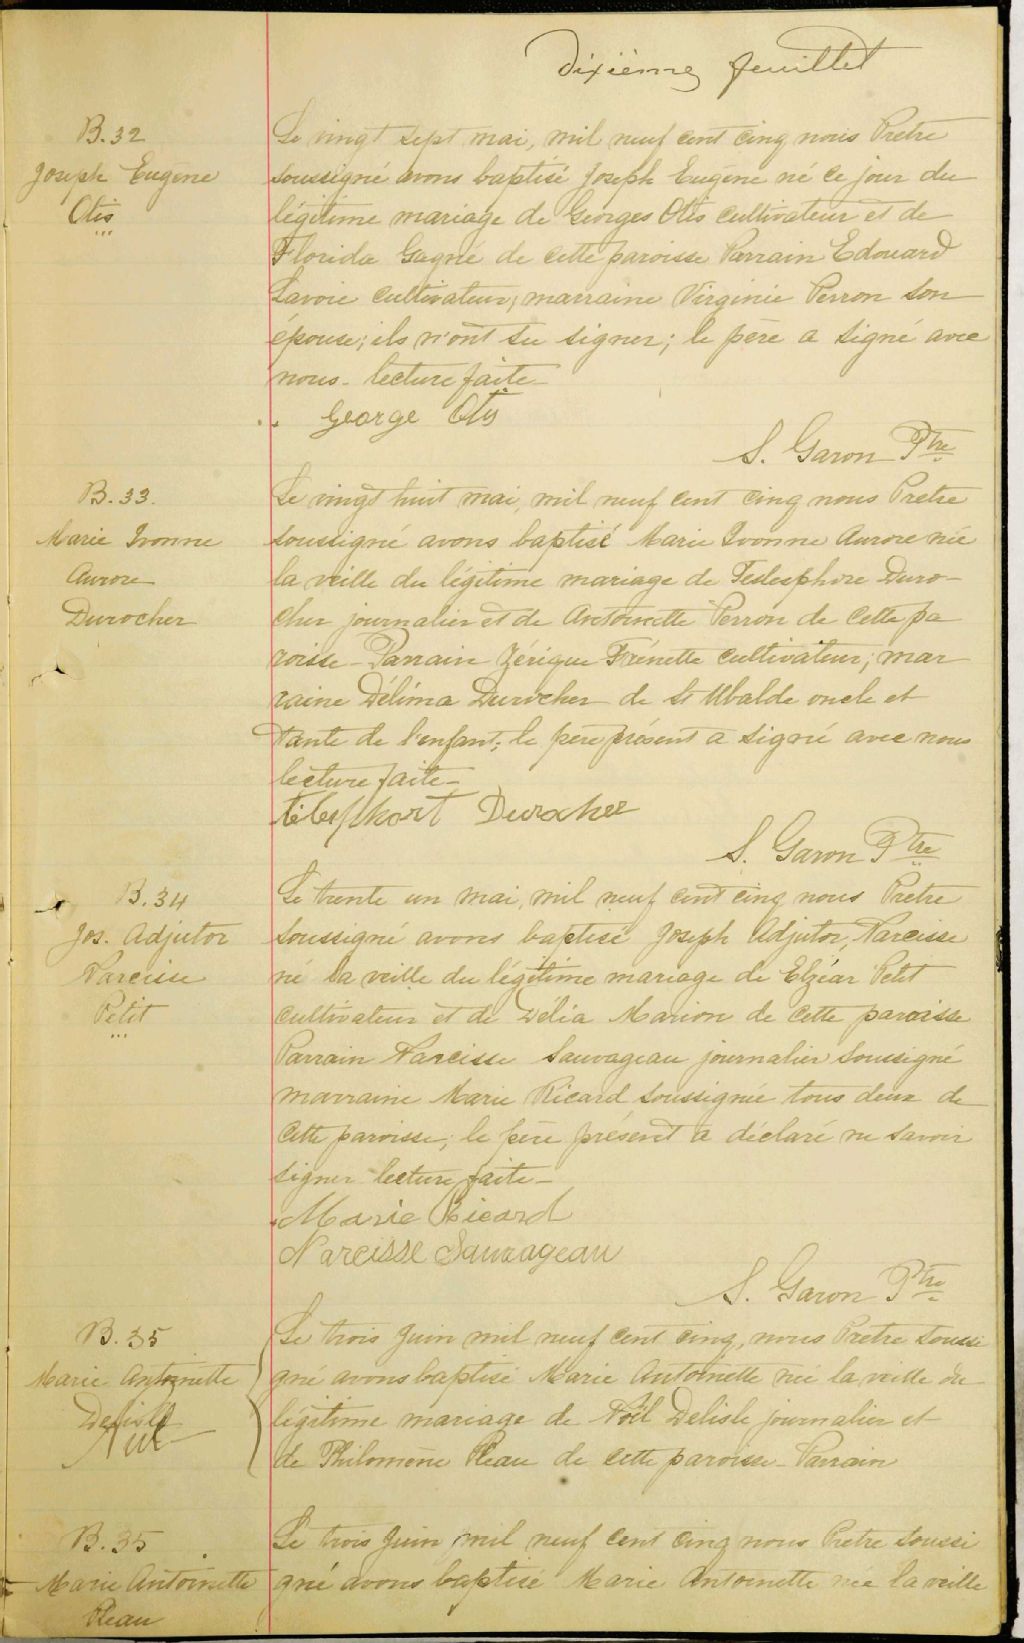 Dixième feuillet
B.32
Joseph Eugène
Otis
Le vingt sept mai, mil neuf cent cinq nous Prêtre
soussigné avons baptisé Joseph Eugène né ce jour du
légitime mariage de Georges Otis cultivateur et de
Florida Gagné de cette paroisse Parrain Edouard
Savoie cultivateur, marraine Virginie Perron son
épouse; ils n'ont su signer; le père a signé avec
nous. lecture faite_
George Otis
S. Garon Ptre
B.33.
Marie Ivonne
Aurore
Durocher
Le vingt huit mai, mil neuf cent cinq nous Pretre
soussigné avons baptisé Marie Ivonne Aurore née
la veille du légitime mariage de Telesphore Duro-
cher journalier et de Antoinette Perron de cette pa
roisse_ Parrain Zérique Frénette cultivateur; mar
raine Délima Durocher de St Ubalde oncle et
tante de l'enfant; le père présent a signé avec nous
lecture faite_
télesphort Durocher
S. Garon Ptre
B.34
Jos. Adjutor
Narcisse
Petit
Le trente un mai, mil neuf cent cinq nous Pretre
soussigné avons baptisé Joseph Adjutor, Narcisse
né la veille du légitime mariage de Elzéar Petit
cultivateur et de Délia Marion de cette paroisse
Parrain Narcisse Sauvageau journalier soussigné
marraine Marie Ricard soussignée tous deux de
cette paroisse; le père présent a déclaré ne savoir
signer lecture faite_
Marie Ricard
Narcisse Sauvageau
S. Garon Ptre
B.35
Marie Antoinette
Delisle
Nul
Le trois Juin mil neuf cent cinq, nous Pretre soussi
gné avons baptisé Marie Antoinette née la veille du
légitime mariage de Noël Delisle journalier et
de Philomène Pleau de cette paroisse_ Parrain
B.35
Marie Antoinette
Pleau
Le trois Juin, mil neuf cent cinq nous Pretre soussi
gné avons baptisé Marie Antoinette née la veille